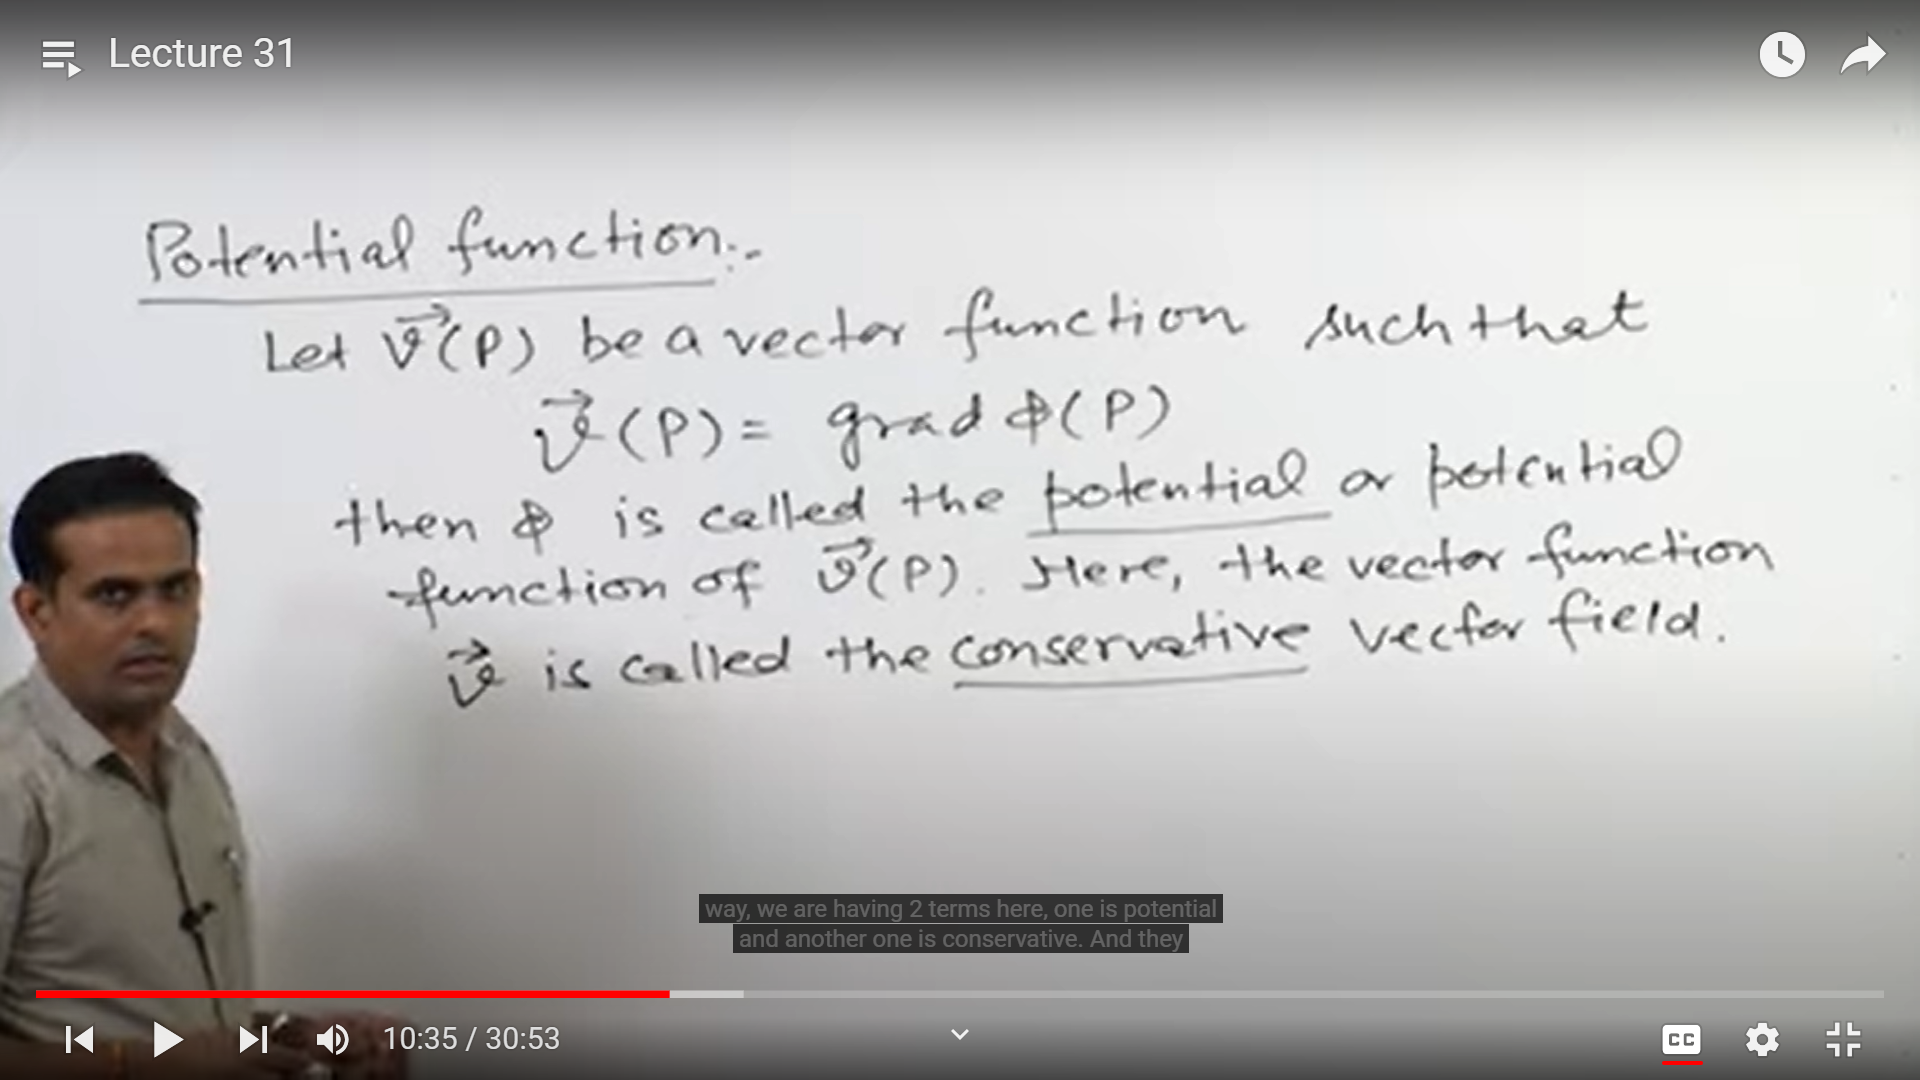 Lecture 31
Potential function:-
Let v⃗(P) be a vector function such that
v⃗(P) = grad ϕ(P)
then ϕ is called the potential or potential
function of v⃗(P). Here, the vector function
v⃗ is called the conservative vector field.
way, we are having 2 terms here, one is potential
and another one is conservative. And they
10:35 / 30:53
CC